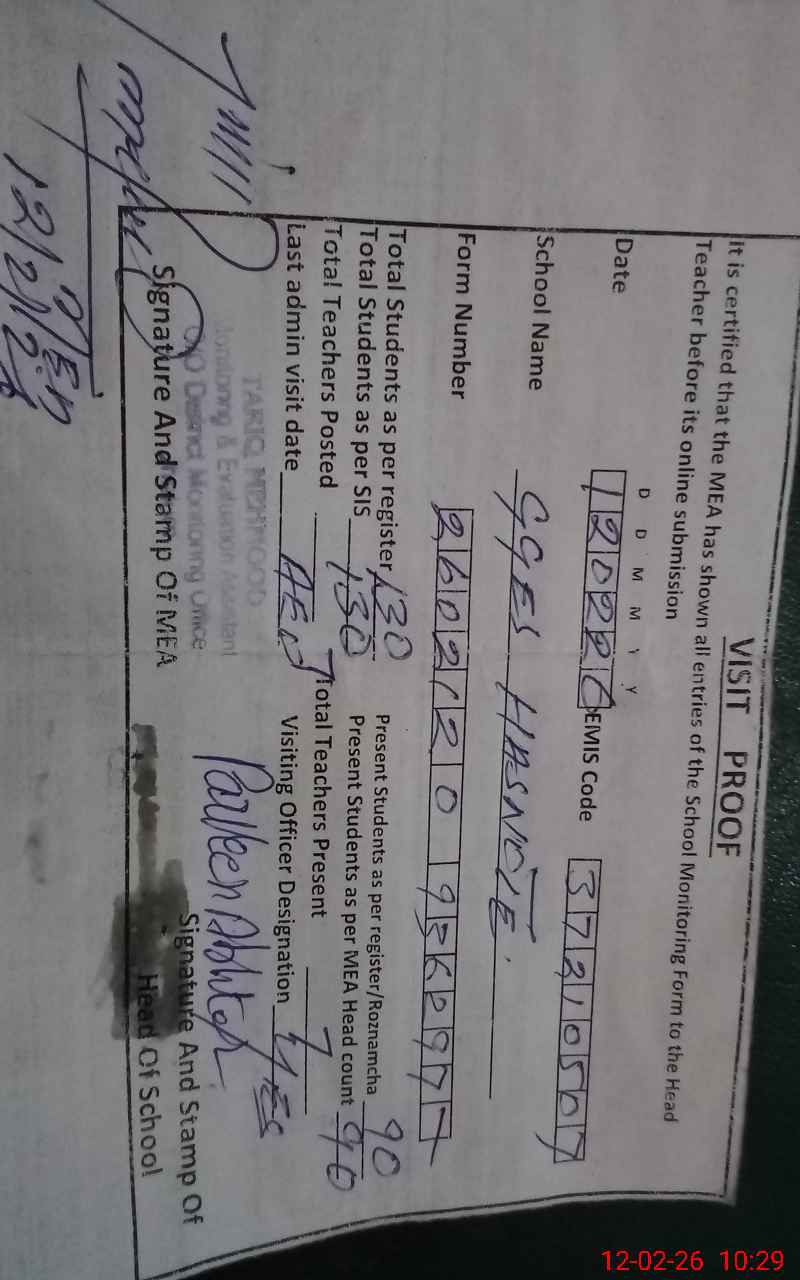 VISIT PROOF
It is certified that the MEA has shown all entries of the School Monitoring Form to the Head
Teacher before its online submission
D D M M Y Y
Date 120226 EMIS Code 37210507
School Name GGES HASNOTE
Form Number 2602120 95K2977
Total Students as per register 130 Present Students as per register/Roznamcha 90
Total Students as per SIS 130 Present Students as per MEA Head count 90
Total Teachers Posted 7 Total Teachers Present 7
Last admin visit date AEO Visiting Officer Designation YES
TARIQ MEHMOOD
Monitoring & Evaluation Assistant
O/O District Monitoring Office
Parveen Akhtar
Signature And Stamp Of MEA
Signature And Stamp Of
Head Of School
12/2/26
12-02-26 10:29